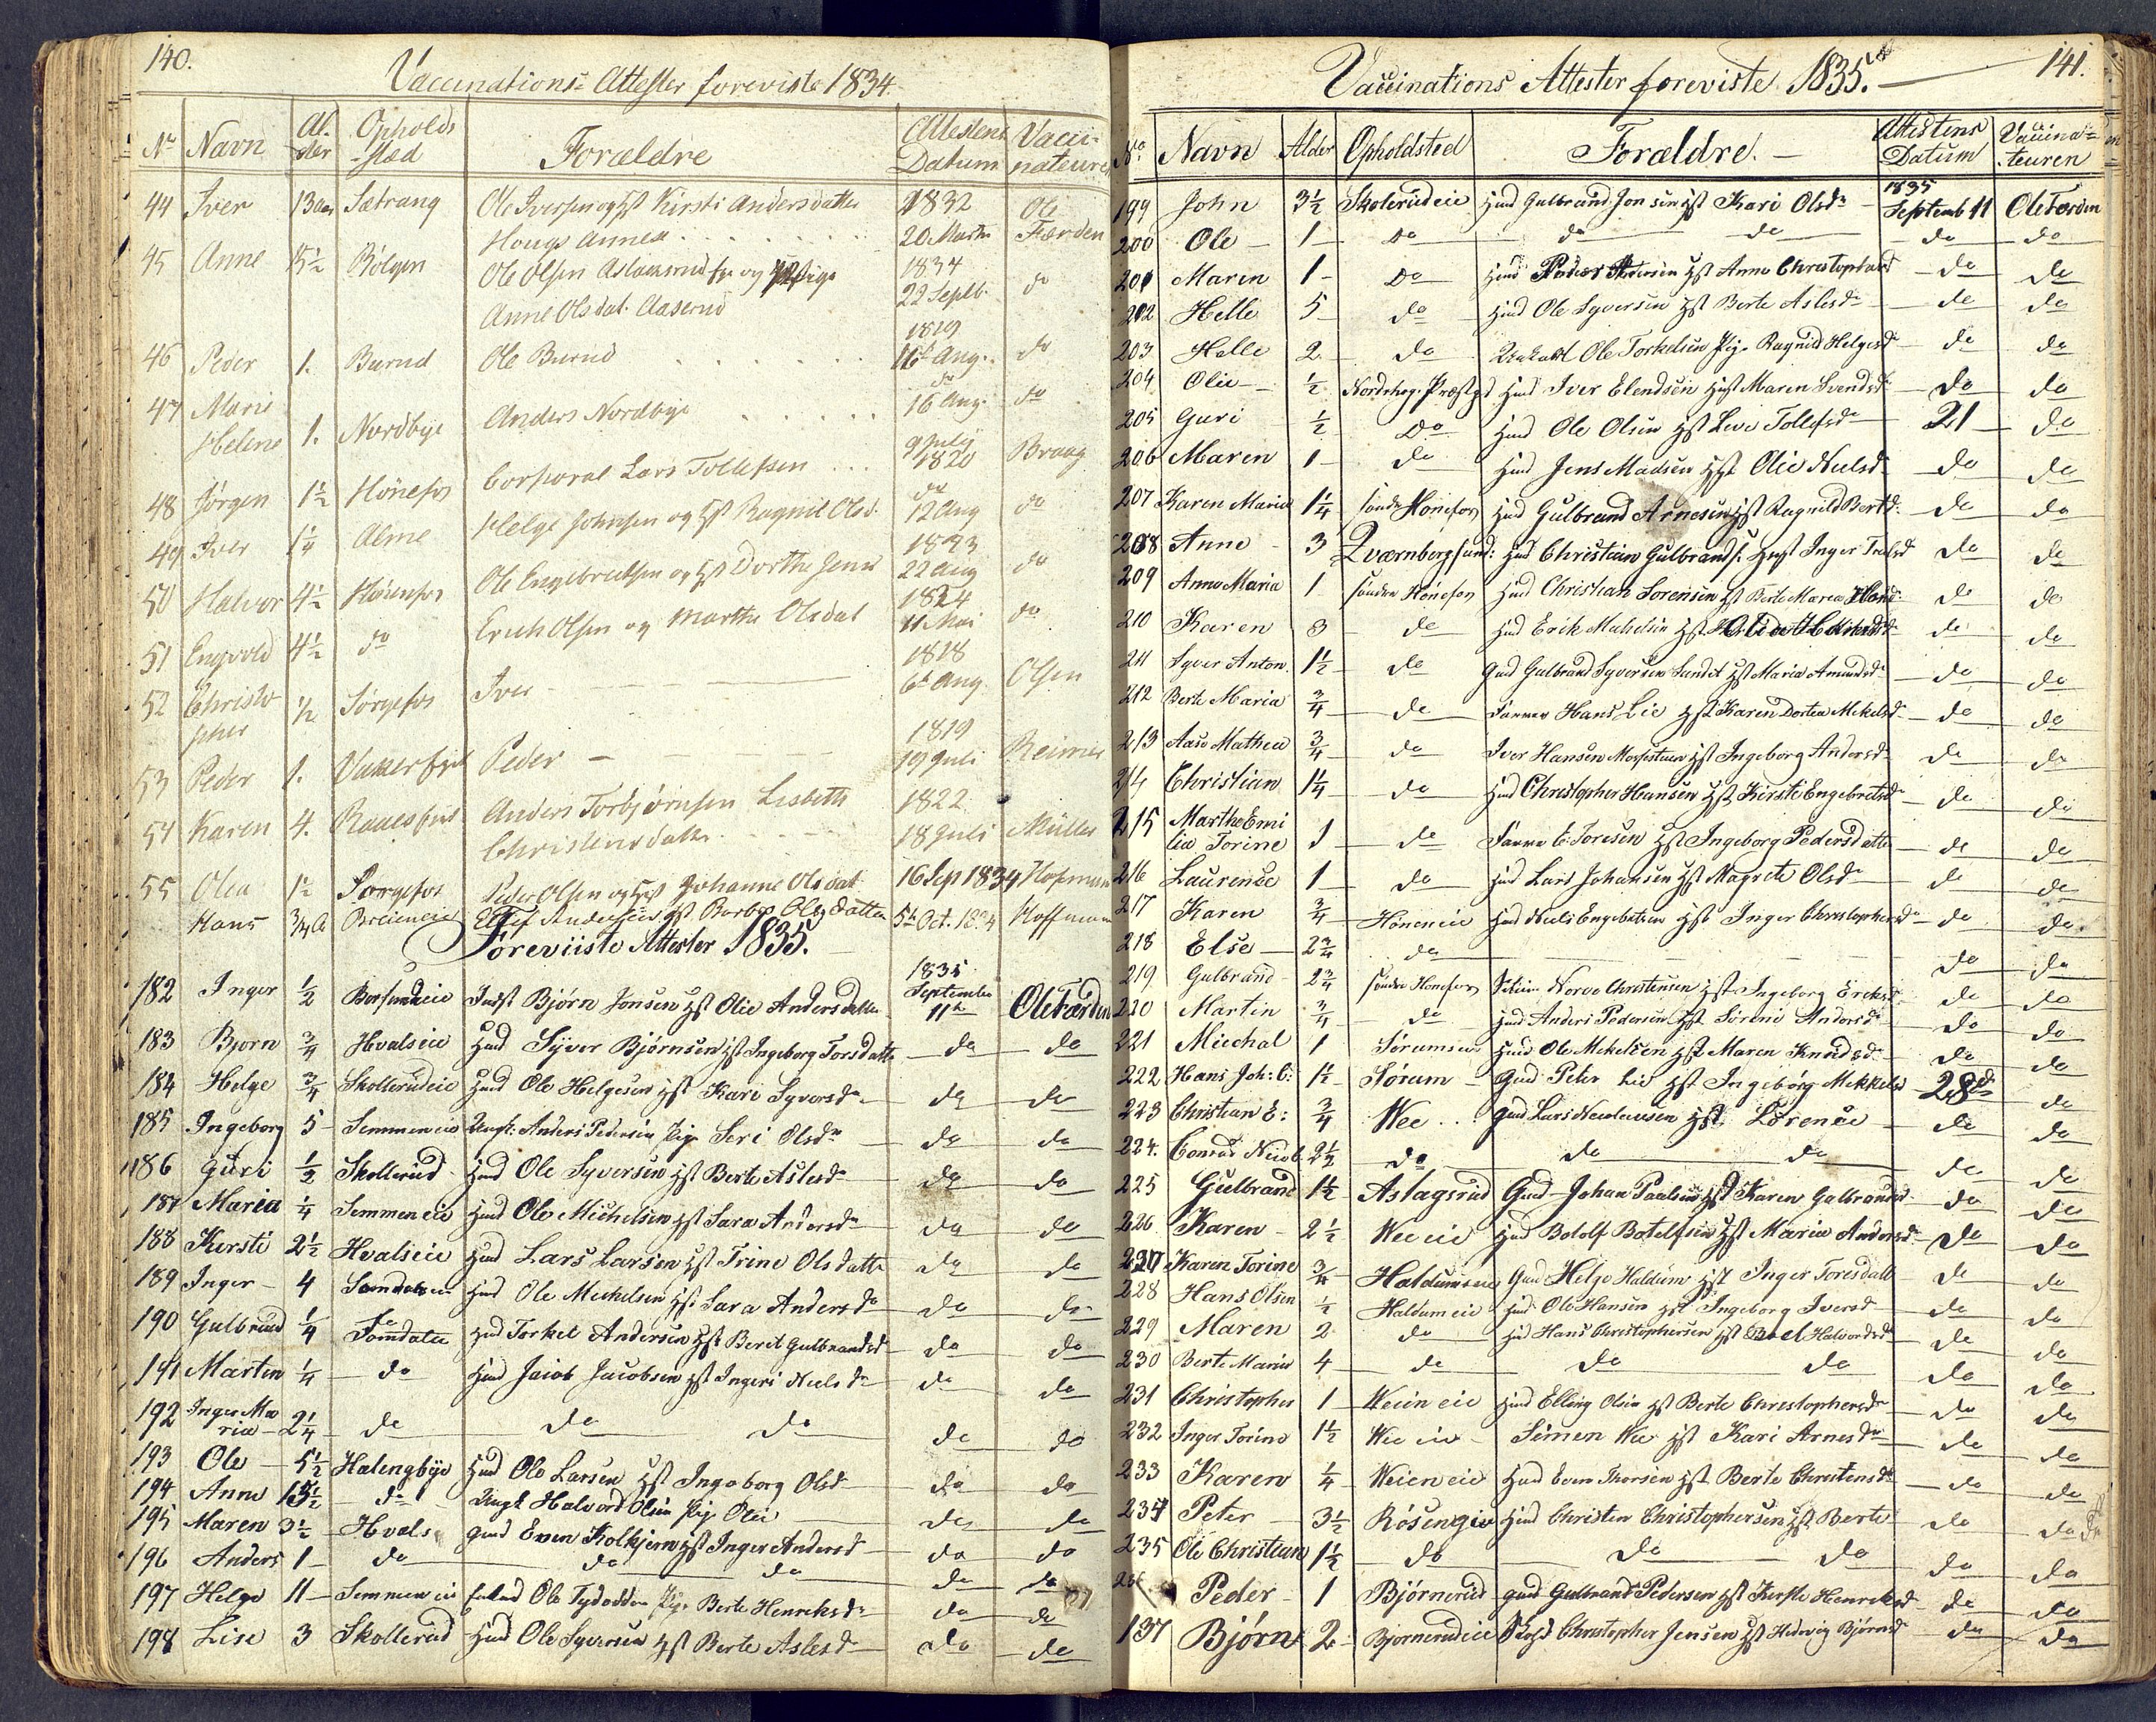 140.
Vaccinations- Attester foreviste 1834.
No Navn Al-der Opholds-sted Forældre Attestens Datum Vacci-nateuren
44 Iver 13 Sætrang Ole Iversen og Hst Kirsti Andersdatter 1832 Ole
Hougs Annex 20 Marts Færden
45 Anne 15½ Bølgen Ole Olsen Aslaksrud og Pige 1834
Anne Olsdat. Aaserud 22 Septb. do
46 Peder 1. Burud Ole Burud 1819 16de Aug. do
47 Marie Helene 1. Nordbye Anders Nordbye do 16 Aug. do
48 Jørgen 1½ Hønefos Corporal Lars Tollefsen 9 July 1820 Braag
49 Iver 1¼ Alme Helge Johnsen og Hst Ragnil Olsd. do 12 Aug do
50 Halvor 4½ Hønefos Ole Engebretsen og Hst Dorthe Jensd 1823 22 Aug do
51 Engvold 4½ do Erich Olsen og Marthe Olsdat 1824 11 Mai do
52 Christopher ½ Sørgefos Iver 1818 6te Aug. Olsen
53 Peder 1. Peder 1819 19 Juli Reimer
54 Karen 4. Anders Torbjørnsen Lisbeth 1822
Christensdatter 18 Juli Müller
55 Olea 1½ Sørgefos Peder Olsen og Hst Johanne Olsdat 16 Sep 1834 Hofmann
Hans ¾ A Andersen Hst Olsdatter 5te Oct. Hoffmann
Foreviiste Attester 1835.
182 Inger ½ Indst Bjørn Jonsen Hst Olie Andersdatter 1835 September 11te Ole Færden
183 Bjørn ¾ Hvalseie Hmd Syver Bjørnsen Hst Ingeborg Torsdatter do do
184 Helge ¾ Skollerudeie Hmd Ole Helgesen Hst Kari Syversdr do do
185 Ingeborg 5 Semmeneie Ungk: Anders Pedersen Pige Seri Olsdr do do
186 Guri ½ Skollerud Hmd Ole Syversen Hst Berte Aslesdr do do
187 Maria ¼ Semmeneie Hmd Ole Michelsen Hst Sara Andersdr do do
188 Kirsti 2½ Hvalseie Hmd Lars Larsen Hst Trine Olsdatter do do
189 Inger 4 Hmd Ole Michelsen Hst Sara Andersdr do do
190 Gulbrand ¼ Hmd Torkel Andersen Hst Berit Gulbrandsd do do
191 Martin ¼ do Hmd Jacob Jacobsen Hst Ingeri Nielsdr do do
192 Inger Maria 2¼ do do do do do
193 Ole 5½ Halingbye Hmd Ole Larsen Hst Ingeborg Olsd do do
194 Anne do Ungk Halvord Olsen Pige Olei do do
195 Maren 3½ Hvals Gmd Even Kolkjern Hst Inger Andersd do do
196 Anders 1 do do do do do
197 Helge 11 Semmeneie Ole Pige Berte Henriksdr do do
198 Lise 3 Skollerud Hmd Ole Syversen Hst Berte Aslesdr do do
141.
Vaccinations Attester foreviste 1835.
No. Navn Alder Opholdsted Forældre. Attestens Datum Vaccina-teuren
199 John 3½ Skolerudeie Hmd Gulbrand Jonsen Hst Kari Olsdr 1835 Septemb 11 Ole Færden
200 Ole 1 do do do do do
201 Maren 1 do Hmd Peder Hst Anne Christophersd do do
202 Helle 5 do Hmd Ole Syversen Hst Berte Aslesdr do do
203 Helle 2 do Ole Torkelsen Pige Ragnild Helgesdr do do
204 Olie ½ Nordrehog. Præstgd Hmd Iver Elendsen Hst Maren Svendsdr do do
205 Guri ½ do Hmd Ole Olsen Hst Live Tollefsdr 21 do
206 Maren 1 do Hmd Jens Madsen Hst Olie Nielsdr do do
207 Karen Maria 1¼ søndre Hønefos Hmd Gulbrand Arnesen Hst Ragnild Bertd. do do
208 Anne 3 Qværnbergsund: Hmd Christian Gulbrands. Hst Inger do do
209 Anne Maria 1 søndre Hønefos Hmd Christian Sørensen Hst Berte Maria do do
210 Karen 3 do Hmd Erik Hst do do
211 Syver Anton 1½ do Gmd Gulbrand Syversen Hst Maria Amundsdr do do
212 Berte Maria ¾ do Hans Lie Hst Karen Dortea Mikelsdr do do
213 Aase Mathea ¾ do Iver Hansen Hst Ingeborg Andersdr do do
214 Christian 1¼ do Hmd Christopher Hansen Hst Kirsti Engebretsdr do do
215 Marthe Emilia Torine 1 do E: Toresen Hst Ingeborg Pedersdatter do do
216 Laurense 1 do Hmd Lars Johansen Hst Magrete Olsdr do do
217 Karen ¾ Høneneie Hmd Niels Engebretsen Hst Inger Christophersdr do do
218 Else 2¾ do do do
219 Gulbrand 2¾ søndre Hønefos Christensen Hst Ingeborg Eriksd do do
220 Martin ¾ do Hmd Anders Pedersen Hst Sørine Andersdr do do
221 Miechal 1 Hmd Ole Mekelsen Hst Maren Knudsdr do do
222 Hans Joh: C: 1½ Sørum Gmd Peter Lie Hst Ingebørg Mekkelsd 28de do
223 Christian E: ¾ Wee Gmd Lars Hst Lorense do do
224. Conrad 2½ do do do do do
225 Gulbrand 1½ Aslagsrud Gmd Johan Paalsen Hst Karen Gulbrandsd do do
226 Karen 2½ Wee eie Hmd Bololf Botelfsen Hst Maria Andersdr do do
227 Karen Torine ¾ Gmd Helge Haldum Hst Inger Toresdatt do do
228 Hans Olsen ½ Haldumeie Hmd Ole Hansen Hst Ingeborg Iversd do do
229 Maren 2 do Hmd Hans Christophersen Hst Boel Halvordsdr do do
230 Berte Maria 4 do do do do do
231 Christopher 1 Weien eie Hmd Elling Olsen Hst Berte Christophersdr do do
232 Inger Torine 1½ Wee eie Simen Wee Hst Kari Arnesdr do do
233 Karen ¼ Weieneie Hmd Even Thorsen Hst Berte Christensdr do do
234 Peter 3½ Røsengie Hmd Christen Christophersen Hst Berte do do
235 Ole Christian 1½ do do do do do
Peder 1 Bjørnerud Gmd Gulbrand Pedersen Hst Kirstie Henriksd do do
137 Bjørn 2 Bjørnerudeie Christopher Jensen Hst Hedevig Bjørnsdr do do